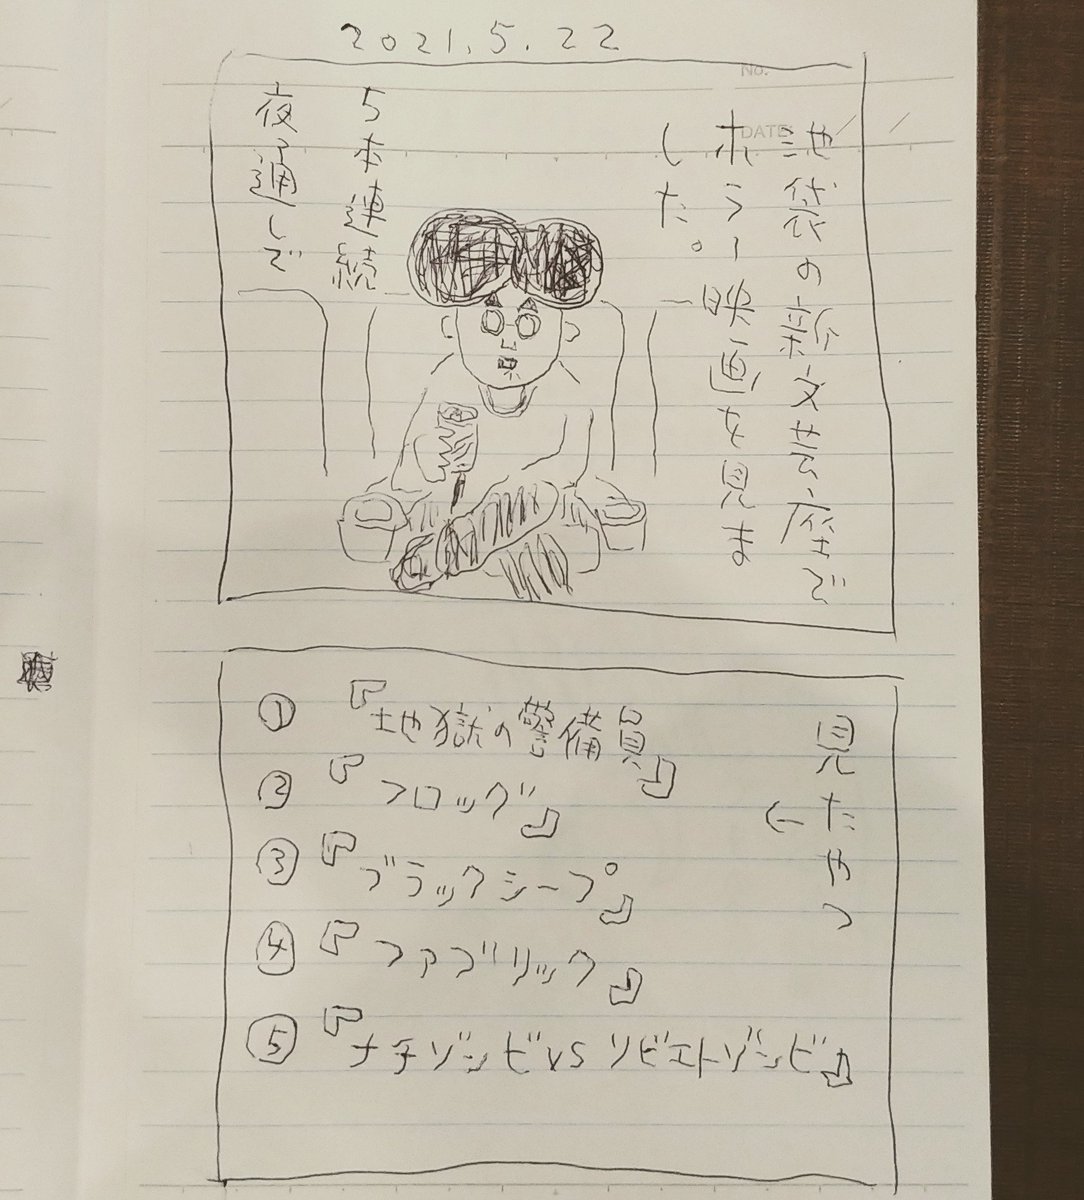 2021.5.22
No.
DATE
池袋の新文芸座で
ホラー映画を見ま
した。
5本連続
夜通しで
見たやつ
←
① 『地獄の警備員』
② 『フロッグ』
③ 『ブラックシープ』
④ 『ファブリック』
⑤ 『ナチゾンビvsソビエトゾンビ』